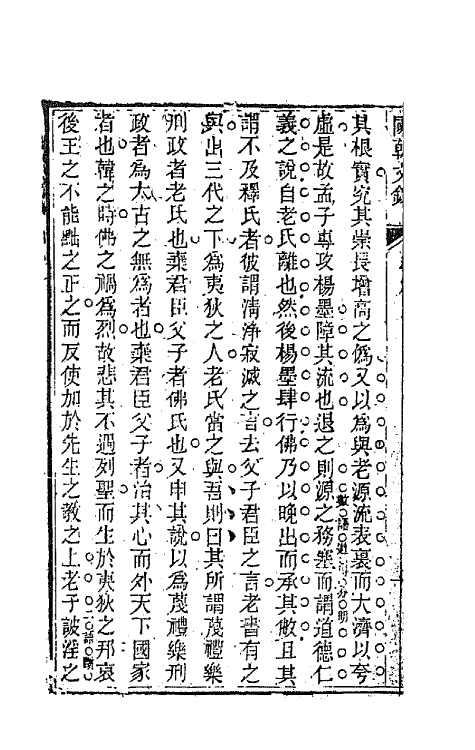 國朝文錄
其根實究其崇長增高之僞又以爲與老源流表裏而大濟以夸
虛是故孟子專攻楊墨障其流也退之則源之務塞而謂道德仁
義之說自老氏離也然後楊墨肆行佛乃以晚出而承其敝且其
謂不及釋氏者彼謂清淨寂滅之言去父子君臣之言老書有之
與出三代之下爲夷狄之人老氏當之與吾則曰其所謂蔑禮樂
刑政者老氏也棄君臣父子者佛氏也又申其說以爲蔑禮樂刑
政者爲太古之無爲者也棄君臣父子者治其心而外天下國家
者也韓之時佛之禍爲烈故悲其不遇列聖而生於夷狄之邦哀
後王之不能黜之正之而反使加於先生之教之上老子詖淫之